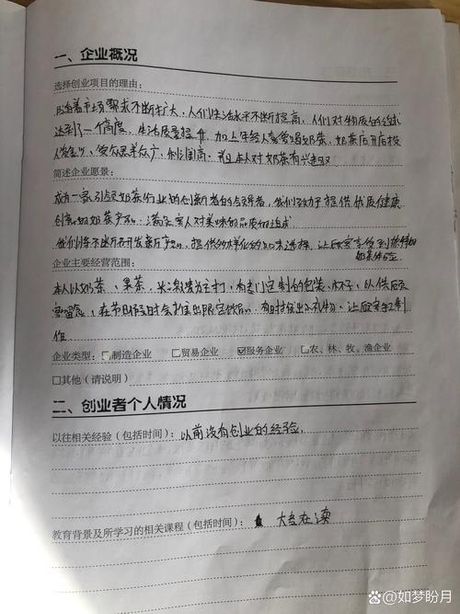 一、企业概况
选择创业项目的理由：
随着市场需求不断扩大，人们生活水平不断提高，人们对物质的追求
达到了一个高度，生活质量提升，加上年轻人喜爱喝奶茶，奶茶店开店投
入资金小，受众群众广，利润高，且本人对奶茶有兴趣
简述企业愿景：
成为一家引领奶茶行业的创新者的领导者，我们致力于提供优质健康
创意的奶茶产品，满足客人对美味的品质的追求
我们将不断研发新产品，提供多样化的口味选择，让顾客享受到独特的
奶茶体验
企业主要经营范围：
本人以奶茶、果茶、为主打，有专门定制的包装、杯子，以供顾
客留念，在节日假日时会推出限定饮品，有时推出小礼物，让顾客
作。
企业类型：□制造企业 □贸易企业 ☑服务企业 □农、林、牧、渔企业
□其他（请说明）
二、创业者个人情况
以往相关经验（包括时间）：以前没有创业的经验，
教育背景及所学习的相关课程（包括时间）：大专在读
@如梦盼月